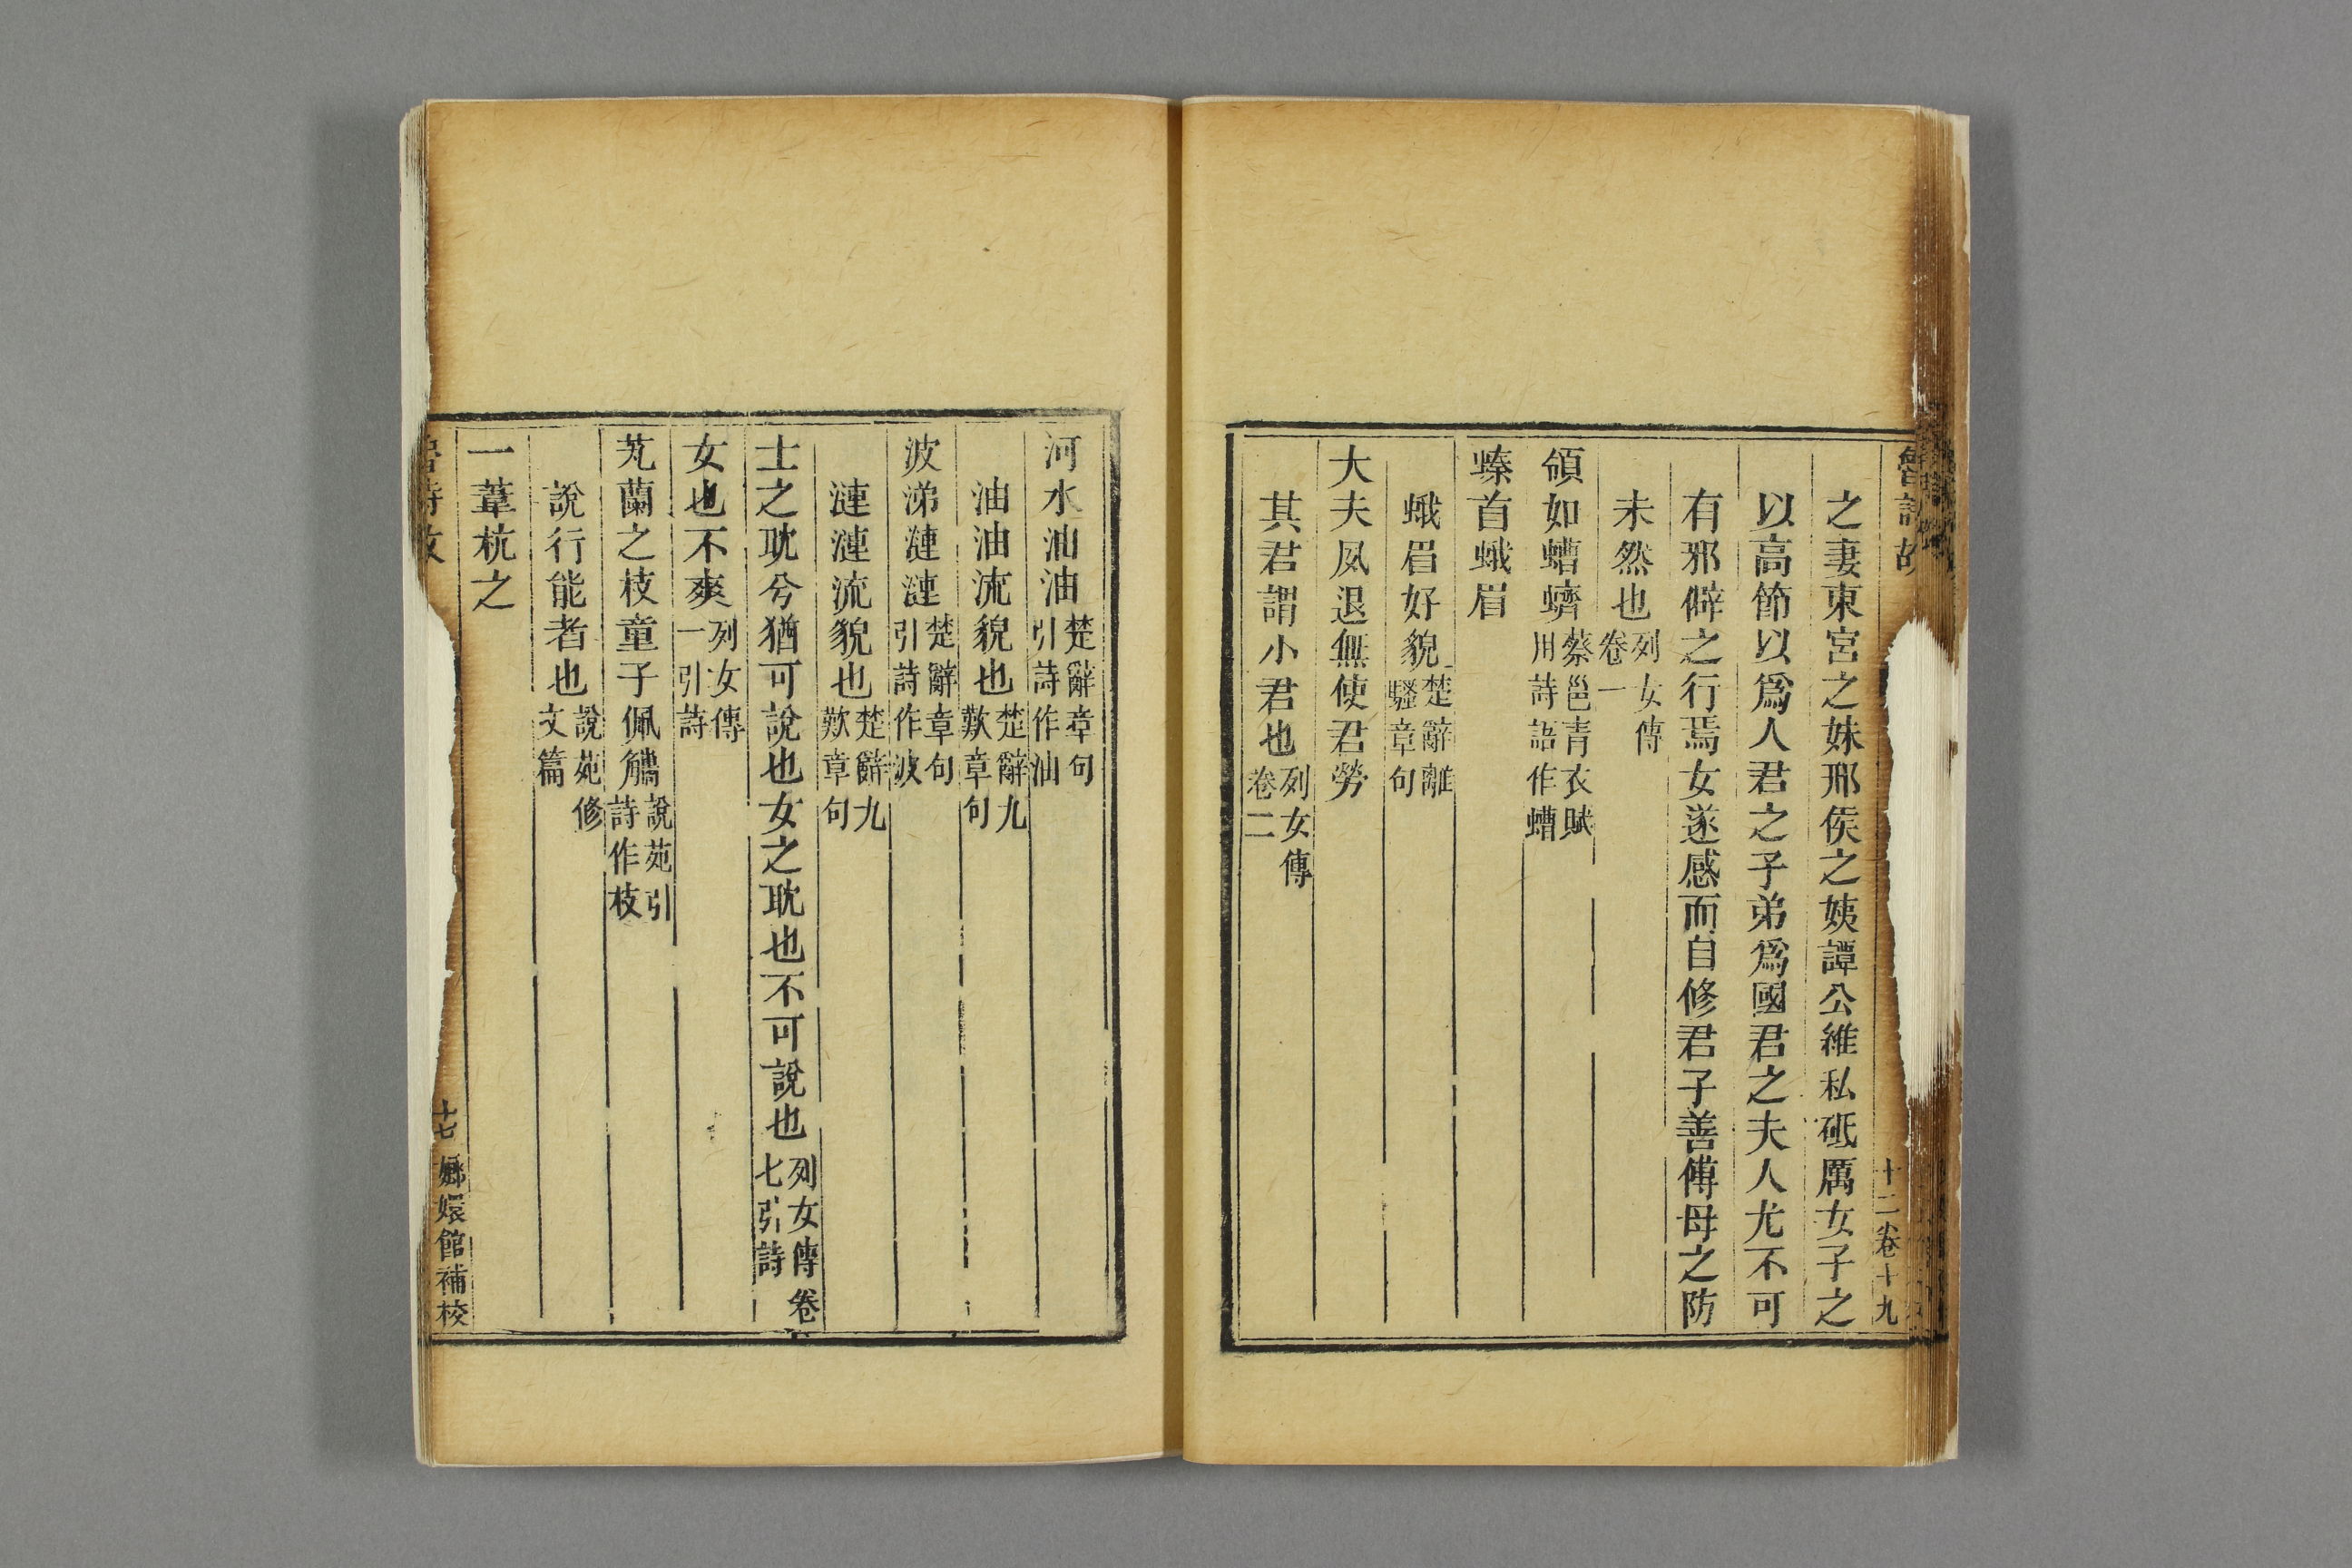 魯詩故
十二卷十九
之妻東宮之妹邢侯之姨譚公維私砥厲女子之
以高節以爲人君之子弟爲國君之夫人尤不可
有邪僻之行焉女遂感而自修君子善傅母之防
未然也列女傳卷一
領如蝤蠐蔡邕青衣賦用詩語作蝤
螓首蛾眉
蛾眉好貌楚辭離騷章句
大夫夙退無使君勞
其君謂小君也列女傳卷二
河水油油楚辭章句引詩作油
油油流貌也楚辭九歎章句
波涕漣漣楚辭章句引詩作波
漣漣流貌也楚辭九歎章句
士之耽兮猶可說也女之耽也不可說也列女傳卷七引詩
女也不爽列女傳一引詩
芄蘭之枝童子佩觿說苑引詩作枝
說行能者也說苑修文篇
一葦杭之
魯詩故
十七
嫏嬛館補校